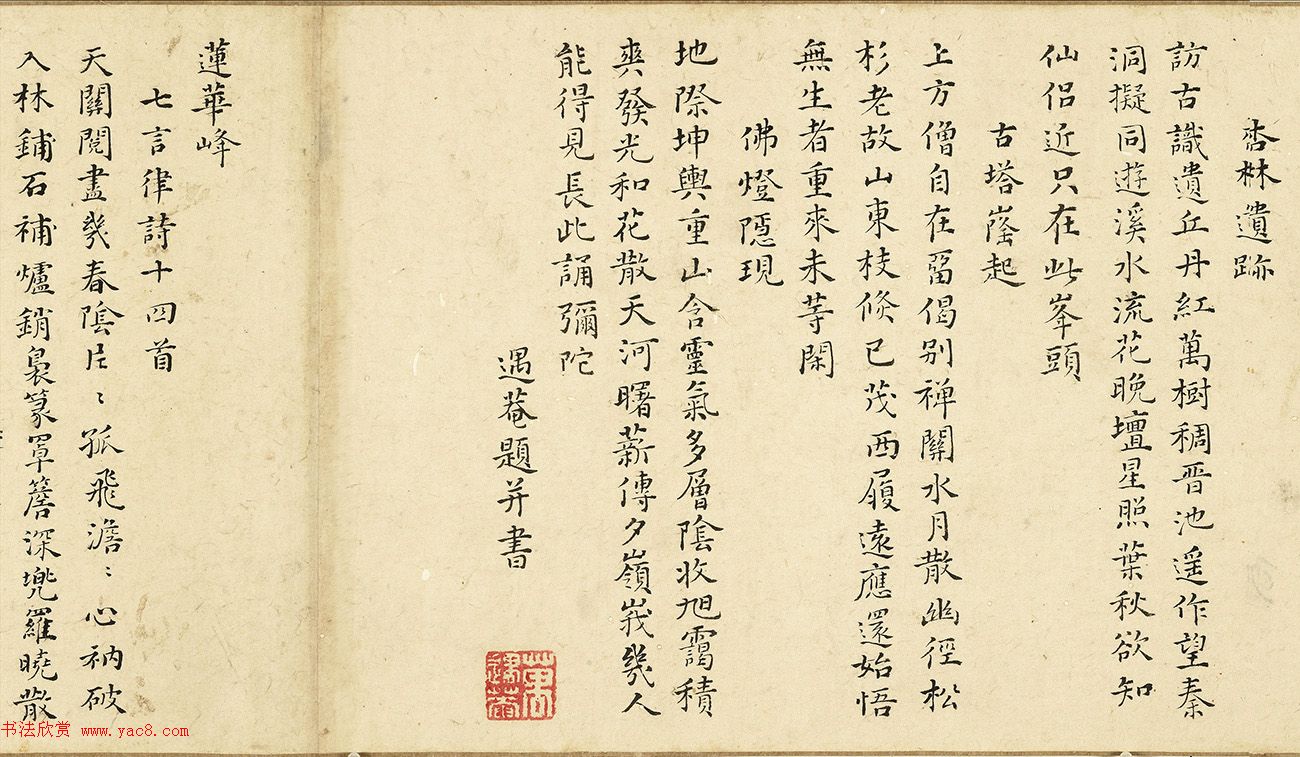 杏林遺跡
訪古識遺丘丹紅萬樹稠晋池遥作望秦
洞擬同遊溪水流花晚壇星照葉秋欲知
仙侣近只在此峯頭
古塔崔起
上方僧自在留偈别禅關水月散幽徑松
杉老故山東枝倏已茂西履遠應還始悟
無生者重來未等閑
佛燈隱現
地際坤輿重山含靈氣多層陰收旭靄積
爽發光和花散天河曙薪傳夕嶺峩幾人
能得見長此誦彌陀
遇菴題并書
蓮華峰
七言律詩十四首
天關閱盡幾春陰片〻孤飛澹〻心衲破
入林鋪石補爐銷裊篆罩簷深兜羅曉散
书法欣赏 www.yac8.com